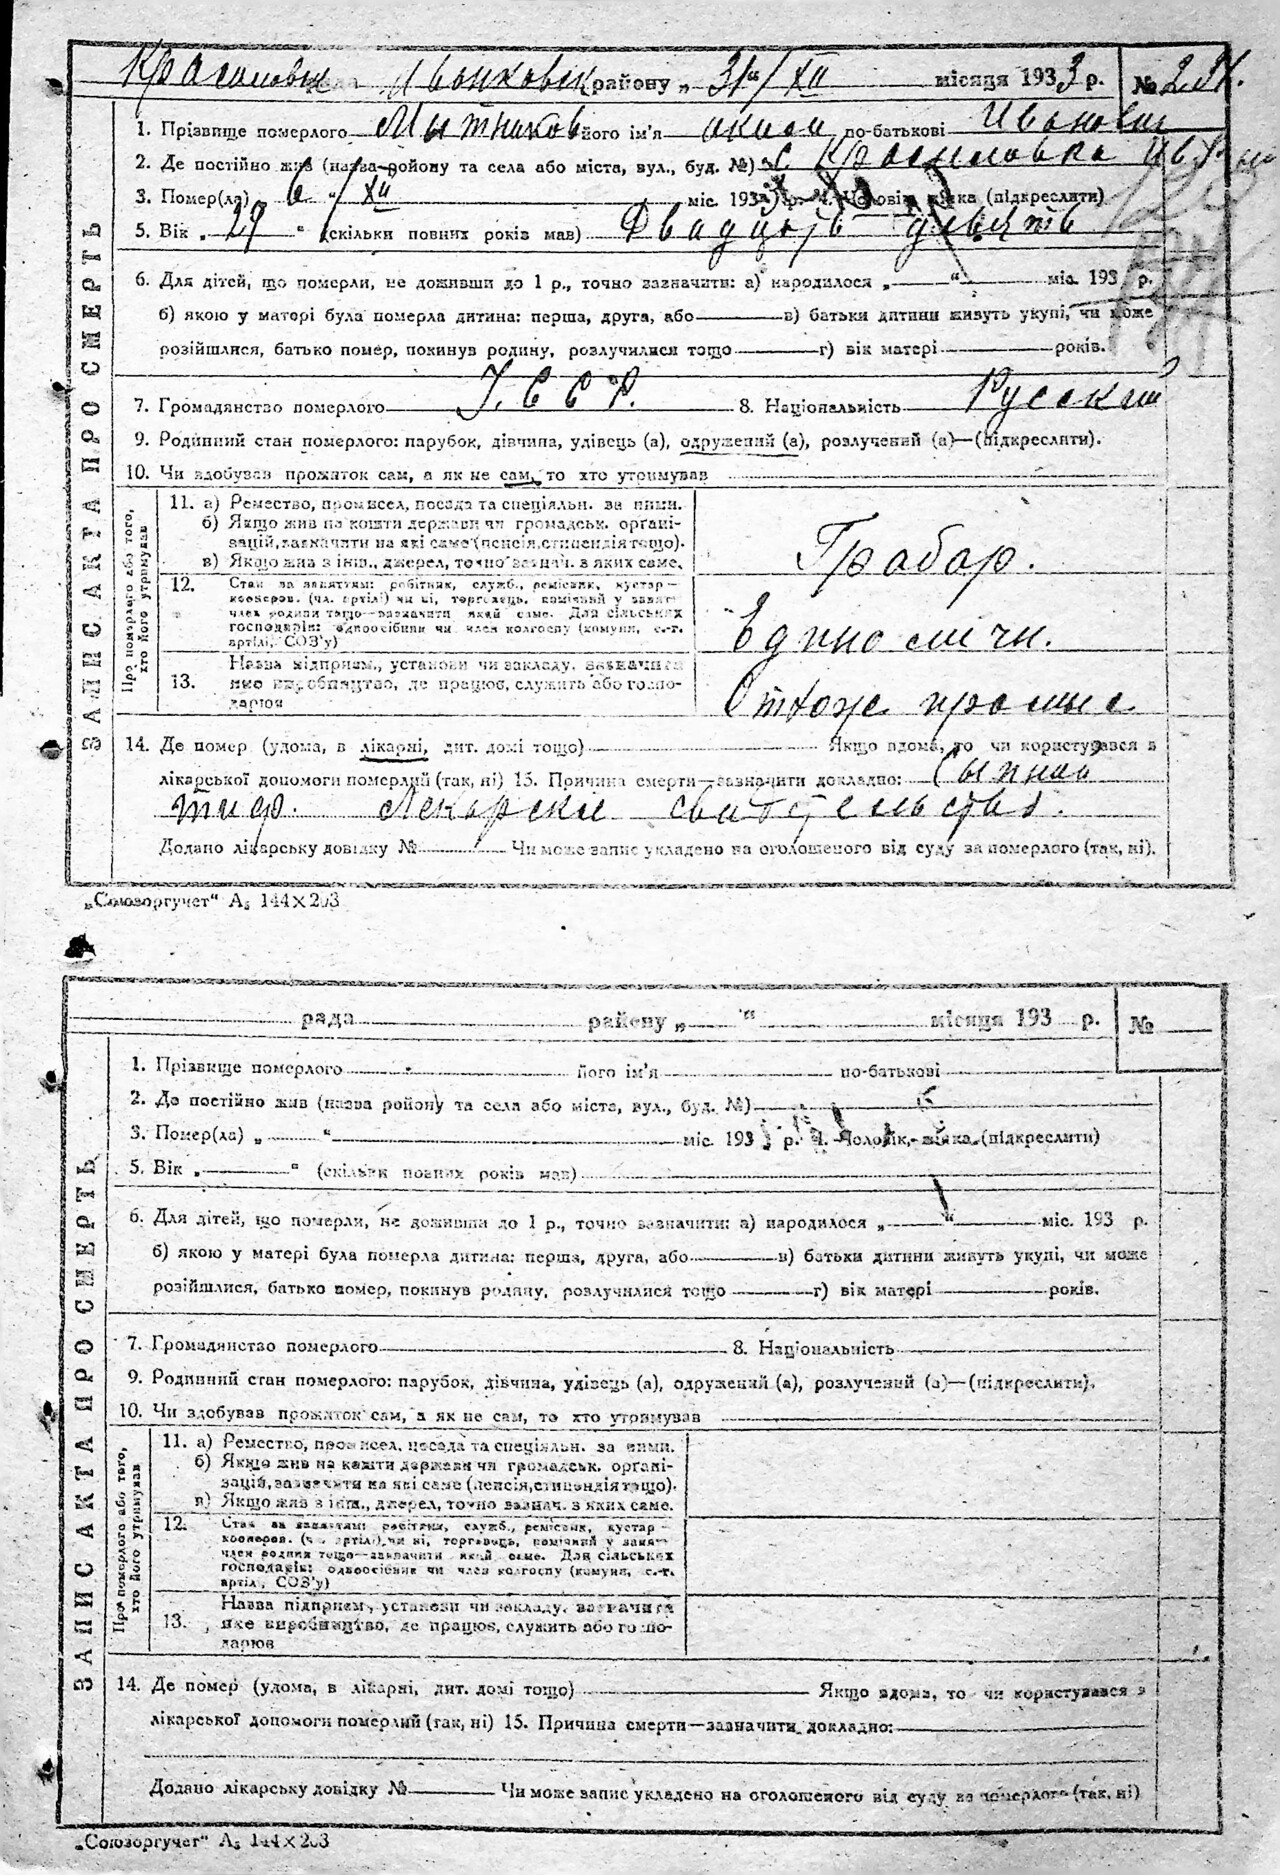 31 " / XII району „ місяця 1933 р. №
1. Прізвище померлого Мытников його ім'я по-батькові Иванович
2. Де постійно жив (назва ройону та села або міста, вул., буд. №) с Красиловка
3. Помер(ла) „ 6 " / XII міс. 193 р. 4. Чоловік, жінка (підкреслити)
5. Вік „ 29 " (скільки повних років мав) Двадцать девять
6. Для дітей, що померли, не доживши до 1 р., точно зазначити: а) народилося „ " міс. 193 р.
б) якою у матері була померла дитина: перша, друга, або в) батьки дитини живуть укупі, чи може
розійшлися, батько помер, покинув родину, розлучилися тощо г) вік матері років.
7. Громадянство померлого У.С.С.Р. 8. Національність Русский
9. Родинний стан померлого: парубок, дівчина, удівець (а), одружений (а), розлучений (а)—(підкреслити).
10. Чи здобував прожиток сам, а як не сам, то хто утримував
ЗАПИС АКТА ПРО СМЕРТЬ
Про померлого або того, хто його утримував
11. а) Ремество, промисел, посада та спеціяльн. за ними.
б) Якщо жив на кошти держави чи громадськ. органі-
зацій, зазначити на які саме (пенсія, стипендія тощо).
в) Якщо жив з інш., джерел, точно зазнач. з яких саме.
Грабар.
12. Стан за занятям: робітник, служб., ремісник, кустар—
кооперов. (чл. артілі) чи ні, торговець, помічний у занят—
член родини тощо—зазначити який саме. Для сільських
господарів: одноосібник чи член колгоспу (комуни, с.-г.
артілі, СОЗ'у)
Єдиноличн.
13. Назва підприєм., установи чи закладу, зазначити
яке виробництво, де працює, служить або госпо-
дарює
Отхоже
14. Де помер (удома, в лікарні, дит. домі тощо) Якщо вдома, то чи користувався з
лікарської допомоги померлий (так, ні) 15. Причина смерти—зазначити докладно: Сыпной
тиф.
Додано лікарську довідку № Чи може запис укладено на оголошеного від суду за померлого (так, ні).
„Союзоргучет" А₅ 144×203
рада району „ " місяця 193 р. №
1. Прізвище померлого його ім'я по-батькові
2. Де постійно жив (назва ройону та села або міста, вул., буд. №)
3. Помер(ла) „ " міс. 193 р. 4. Чоловік, жінка (підкреслити)
5. Вік „ " (скільки повних років мав)
6. Для дітей, що померли, не доживши до 1 р., точно зазначити: а) народилося „ " міс. 193 р.
б) якою у матері була померла дитина: перша, друга, або в) батьки дитини живуть укупі, чи може
розійшлися, батько помер, покинув родину, розлучилися тощо г) вік матері років.
7. Громадянство померлого 8. Національність
9. Родинний стан померлого: парубок, дівчина, удівець (а), одружений (а), розлучений (а)—(підкреслити).
10. Чи здобував прожиток сам, а як не сам, то хто утримував
ЗАПИС АКТА ПРО СМЕРТЬ
Про померлого або того, хто його утримував
11. а) Ремество, промисел, посада та спеціяльн. за ними.
б) Якщо жив на кошти держави чи громадськ. органі-
зацій, зазначити на які саме (пенсія, стипендія тощо).
в) Якщо жив з інш., джерел, точно зазнач. з яких саме.
12. Стан за занятям: робітник, служб., ремісник, кустар—
кооперов. (чл. артілі) чи ні, торговець, помічний у занят—
член родини тощо—зазначити який саме. Для сільських
господарів: одноосібник чи член колгоспу (комуни, с.-г.
артілі, СОЗ'у)
13. Назва підприєм., установи чи закладу, зазначити
яке виробництво, де працює, служить або госпо-
дарює
14. Де помер (удома, в лікарні, дит. домі тощо) Якщо вдома, то чи користувався з
лікарської допомоги померлий (так, ні) 15. Причина смерти—зазначити докладно:
Додано лікарську довідку № Чи може запис укладено на оголошеного від суду за померлого (так, ні)
„Союзоргучет" А₅ 144×203